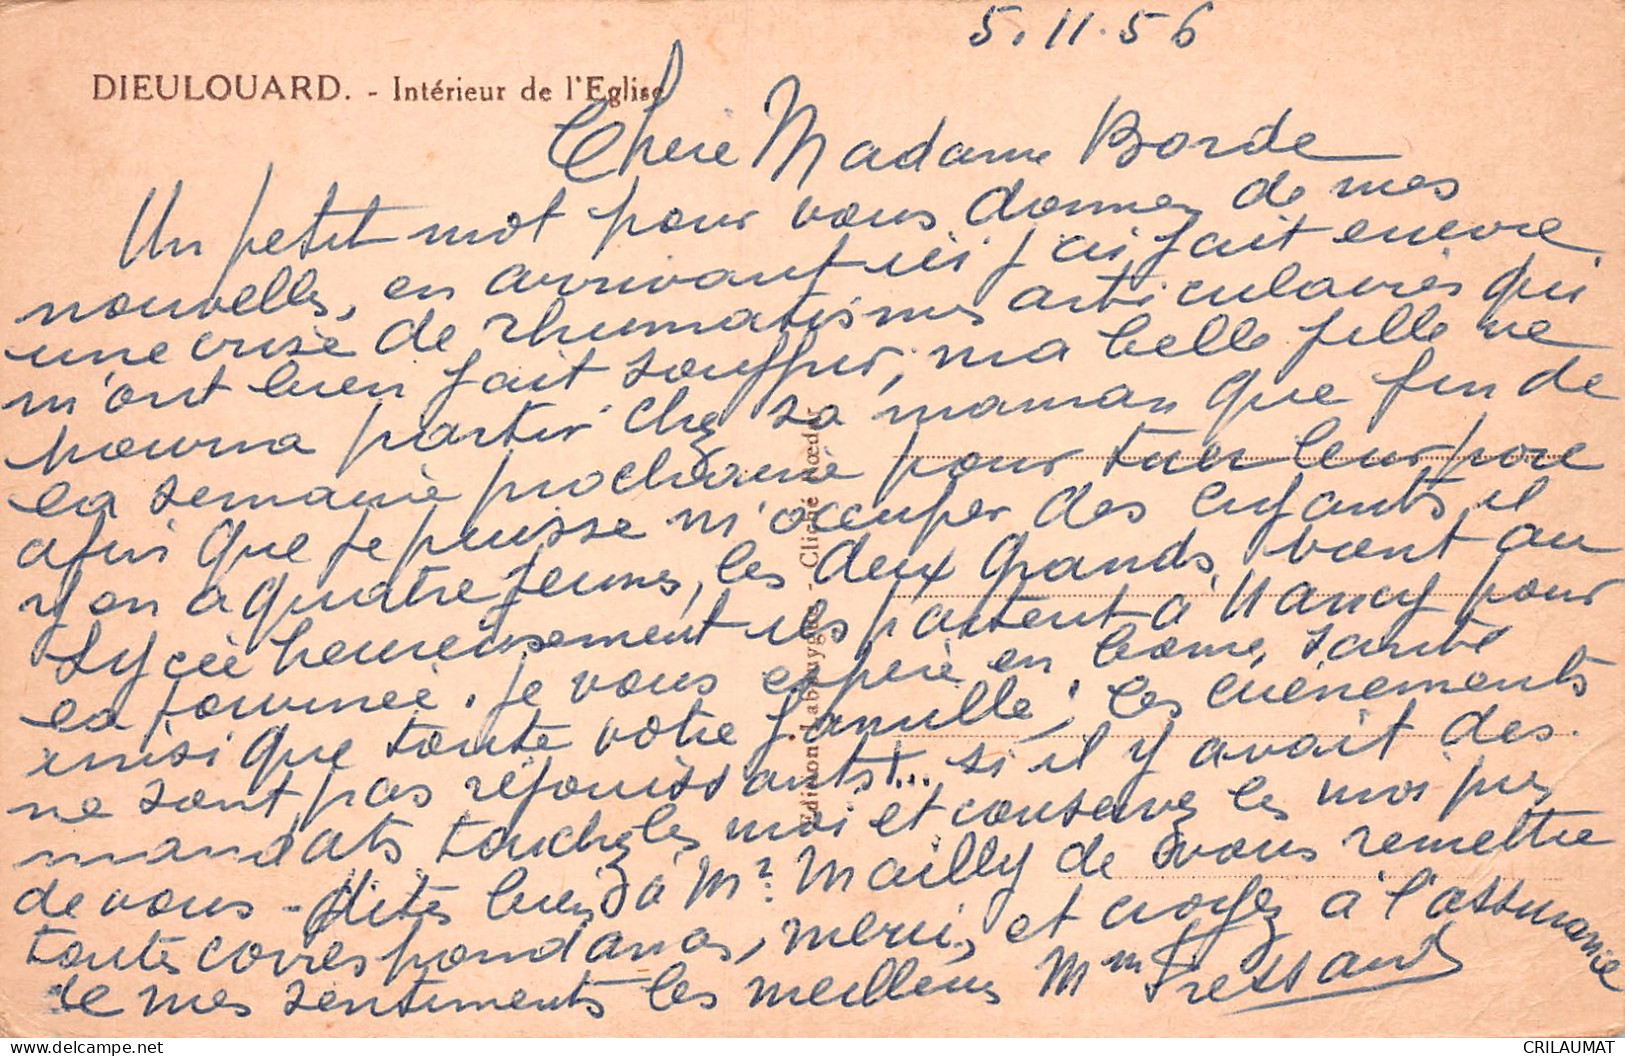 5.11.56
DIEULOUARD. - Intérieur de l'Eglise
Chère Madame Borde
Un petit mot pour vous donner de mes
nouvelles, en arrivant ici j'ai fait encore
une crise de rhumatismes articulaires qui
m'ont bien fait souffrir, ma belle fille ne
pourra partir chez sa maman que fin de
la semaine prochaine pour tuer leur porc
afin que je puisse m'occuper des enfants, il
y en a quatre jeunes, les deux grands vont au
Lycée heureusement ils partent à Nancy pour
la journée. je vous espère en bonne santé
ainsi que toute votre famille; les evènements
ne sont pas réjouissants!... si il y avait des
mandats touchez les moi et conservez les moi près
de vous - dites bien à Mr Mailly de vous remettre
toutes correspondances, merci, et croyez à l'assurance
de mes sentiments les meilleurs Mme
Edition Labouygue - Cliché Rœder
delcampe.net
CRILAUMAT